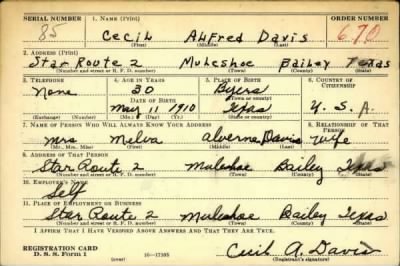 SERIAL NUMBER 1. NAME (Print) ORDER NUMBER
85 Cecil Alfred Davis 670
(First) (Middle) (Last)
2. ADDRESS (Print)
Star Route 2 Muleshoe Bailey Texas
(Number and street or R. F. D. number) (Town) (County) (State)
3. TELEPHONE 4. AGE IN YEARS 5. PLACE OF BIRTH 6. COUNTRY OF CITIZENSHIP
None 30 Byers
DATE OF BIRTH (Town or county)
May 11 1910 Texas U. S. A.
(Exchange) (Number) (Mo.) (Day) (Yr.) (State or country)
7. NAME OF PERSON WHO WILL ALWAYS KNOW YOUR ADDRESS 8. RELATIONSHIP OF THAT PERSON
Mrs Melva Alverne Davis Wife
(Mr., Mrs., Miss) (First) (Middle) (Last)
9. ADDRESS OF THAT PERSON
Star Route 2 Muleshoe Bailey Texas
(Number and street or R. F. D. number) (Town) (County) (State)
10. EMPLOYER'S NAME
Self
11. PLACE OF EMPLOYMENT OR BUSINESS
Star Route 2 Muleshoe Bailey Texas
(Number and street or R. F. D. number) (Town) (County) (State)
I AFFIRM THAT I HAVE VERIFIED ABOVE ANSWERS AND THAT THEY ARE TRUE.
REGISTRATION CARD
D. S. S. Form 1 16—17105 Cecil A. Davis
(Registrant's signature)